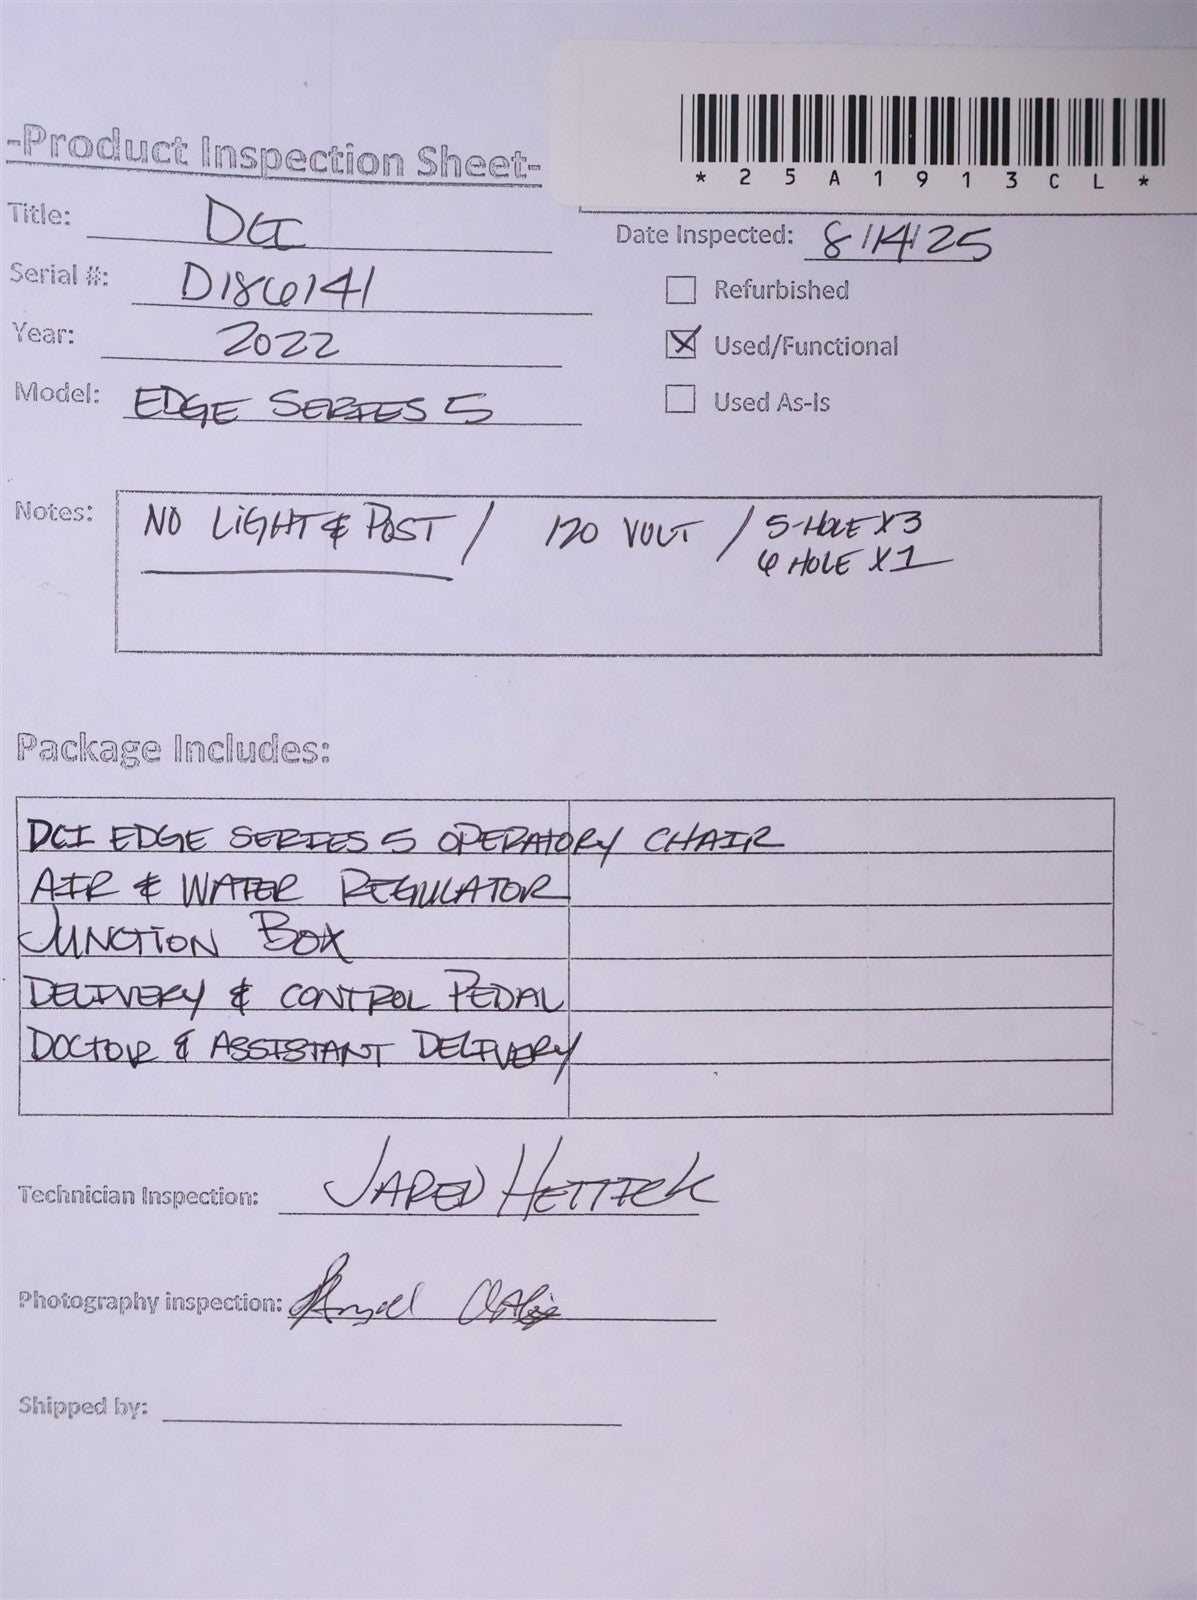 *25A1913CL*
-Product Inspection Sheet-
Title: DCI
Date Inspected: 8/14/25
Serial #: D186141
Refurbished
Year: 2022
Used/Functional
Model: EDGE SERIES 5
Used As-Is
Notes: NO LIGHT & POST / 120 VOLT / 5-HOLE X3
6 HOLE X1
Package Includes:
DCI EDGE SERIES 5 OPERATORY CHAIR
AIR & WATER REGULATOR
JUNCTION BOX
DELIVERY & CONTROL PEDAL
DOCTOR & ASSISTANT DELIVERY
Technician Inspection: JARED HETTICK
Photography inspection:
Shipped by: